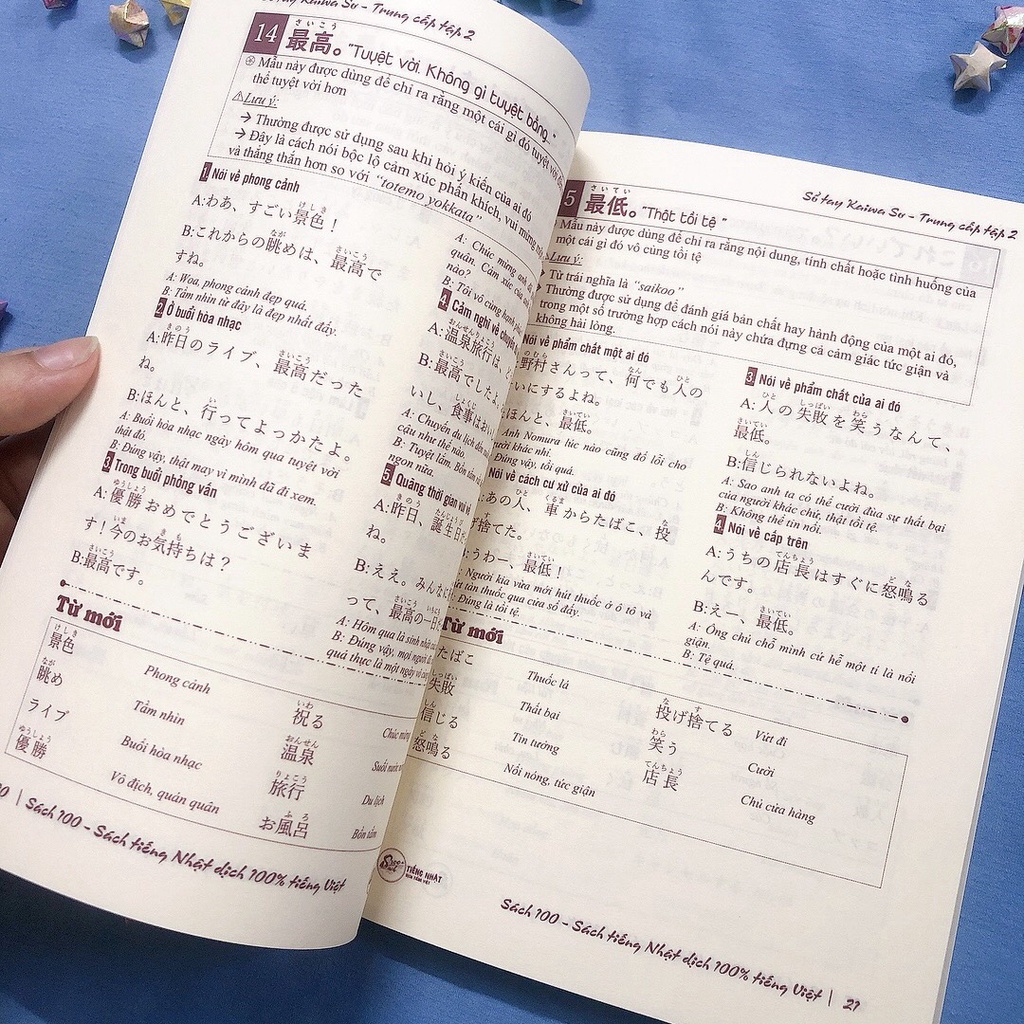 Sổ tay Kaiwa Sơ - Trung cấp tập 2
14 最高。 "Tuyệt vời. Không gì tuyệt bằng..."
Mẫu này được dùng để chỉ ra rằng một cái gì đó tuyệt vời
thể tuyệt vời hơn
Lưu ý:
→ Thường được sử dụng sau khi hỏi ý kiến của ai đó
→ Đây là cách nói bộc lộ cảm xúc phấn khích, vui mừng
và thẳng thắn hơn so với "totemo yokkata"
1 Nói về phong cảnh
A:わあ、すごい景色！
B:これからの眺めは、最高で
すね。
A: Woa, phong cảnh đẹp quá.
B: Tầm nhìn từ đây là đẹp nhất đấy.
2 Ở buổi hòa nhạc
A:昨日のライブ、最高だった
ね。
B:ほんと、行ってよっかたよ。
A: Buổi hòa nhạc ngày hôm qua tuyệt vời
thả đó.
B: Đúng vậy, thật may vì mình đã đi xem.
3 Trong buổi phỏng vấn
A:優勝おめでとうございま
す！今のお気持ちは？
B:最高です。
A: Chúc mừng anh
quân. Cảm xúc của
nào?
B: Tôi vô cùng hạnh phúc
4 Cảm nghĩ về chuyến
A:温泉旅行は、
B:最高でしたよ
いし、食事はお
A: Chuyến du lịch
cậu như thế nào?
B: Tuyệt lắm. Bồn tắm
ngon nữa.
5 Quãng thời gian vui vẻ
A:昨日、誕生日
ね。
B:ええ。みんなに
って、最高の一日
A: Hôm qua là sinh nhật
B: Đúng vậy, mọi người
quả thực là một ngày
Từ mới
景色 Phong cảnh 祝る Chúc mừng
眺め Tầm nhìn 温泉 Suối nước
ライブ Buổi hòa nhạc 旅行 Du lịch
優勝 Vô địch, quán quân お風呂 Bồn tắm
0 | Sách 100 - Sách tiếng Nhật dịch 100% tiếng Việt
Sổ tay Kaiwa Sơ - Trung cấp tập 2
5 最低。 "Thật tồi tệ"
Mẫu này được dùng để chỉ ra rằng nội dung, tính chất hoặc tình huống của
một cái gì đó vô cùng tồi tệ
Lưu ý:
Từ trái nghĩa là "saikoo"
Thường được sử dụng để đánh giá bản chất hay hành động của một ai đó,
trong một số trường hợp cách nói này chứa đựng cả cảm giác tức giận và
không hài lòng.
Nói về phẩm chất một ai đó
野村さんって、何でも人の
いにするよね。
ほんと、最低。
Anh Nomura lúc nào cũng đổ lỗi cho
người khác nhỉ.
Đúng vậy, tồi quá.
Nói về cách cư xử của ai đó
あの人、車からたばこ、投
げ捨てた。
うわー、最低！
Người kia vừa mới hút thuốc ở ô tô và
tàn thuốc qua cửa sổ đấy.
Đúng là tồi tệ.
3 Nói về phẩm chất của ai đó
A: 人の失敗を笑うなんて、
最低。
B:信じられないよね。
A: Sao anh ta có thể cười đùa sự thất bại
của người khác chứ, thật tồi tệ.
B: Không thể tin nổi.
4 Nói về cấp trên
A:うちの店長はすぐに怒鳴る
んです。
B:えー、最低。
A: Ông chủ chỗ mình cứ hễ một tí là nổi
giận.
B: Tệ quá.
Từ mới
たばこ Thuốc lá 投げ捨てる Vứt đi
失敗 Thất bại 笑う Cười
信じる Tin tưởng 店長 Chủ cửa hàng
怒鳴る Nổi nóng, tức giận
TIẾNG NHẬT
Sách 100 - Sách tiếng Nhật dịch 100% tiếng Việt | 21